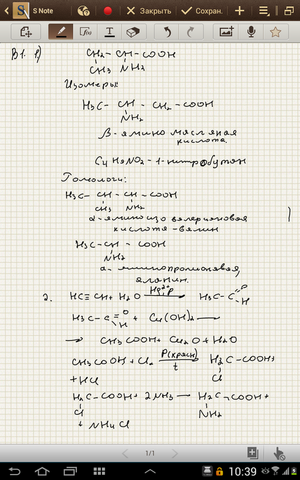 S Note
Закрыть
Сохран.
В1. 1) CH2 - CH - COOH
CH3 NH2
Изомеры:
H3C - CH - CH2 - COOH
NH2
β-амино масляная
кислота
C4H9NO2 - 1-нитробутан
Гомологи:
H3C - CH - CH - COOH
CH3 NH2
α-амино изо валериановая
кислота - валин
H3C - CH - COOH
NH2
α-аминопропионовая,
аланин.
2. HC≡CH + H2O Hg2+, P H3C - C
H3C - C =O H + Cu(OH)2 →
→ CH3COOH + Cu2O + H2O
CH3COOH + Cl2 P(красн) t H2C - COOH
Cl
+ HCl
H2C - COOH + 2NH3 → H2C - COOH +
Cl NH2
+ NH4Cl
1/1
10:39